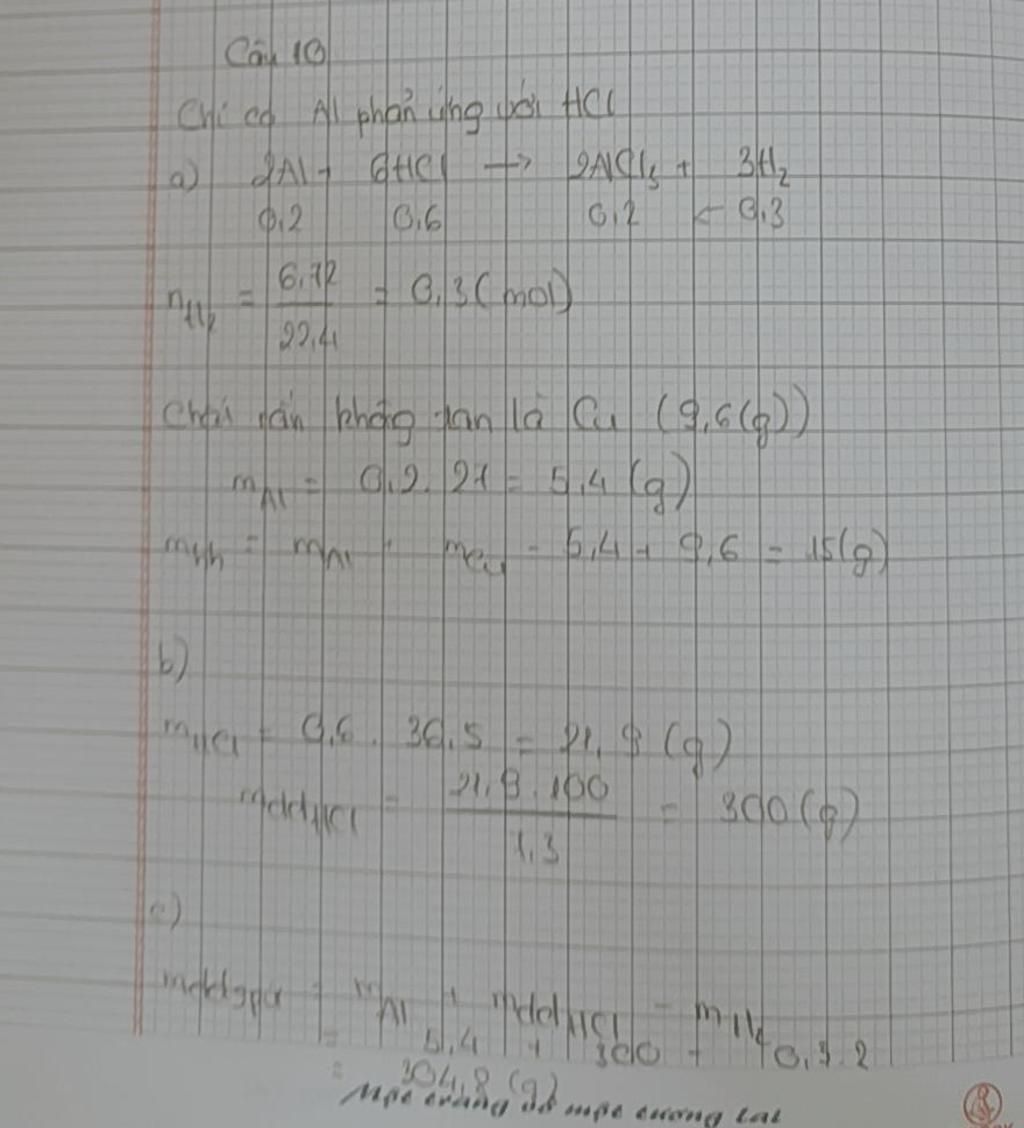 Câu 10
Chỉ có Al phản ứng với HCl
a) 2Al + 6HCl → 2AlCl3 + 3H2
0,2 0,6 0,2 ← 0,3
nH2 = 6,72 / 22,4 = 0,3 (mol)
Chất rắn không tan là Cu (9,6(g))
mAl = 0,2.27 = 5,4 (g)
mhh = mAl + mCu = 5,4 + 9,6 = 15(g)
b)
mHCl = 0,6 . 36,5 = 21,9 (g)
mddHCl = 21,9.100 / 7,3 = 300(g)
c)
mddspư = mAl + mddHCl - mH2
= 5,4 + 300 - 0,3.2
= 304,8 (g)